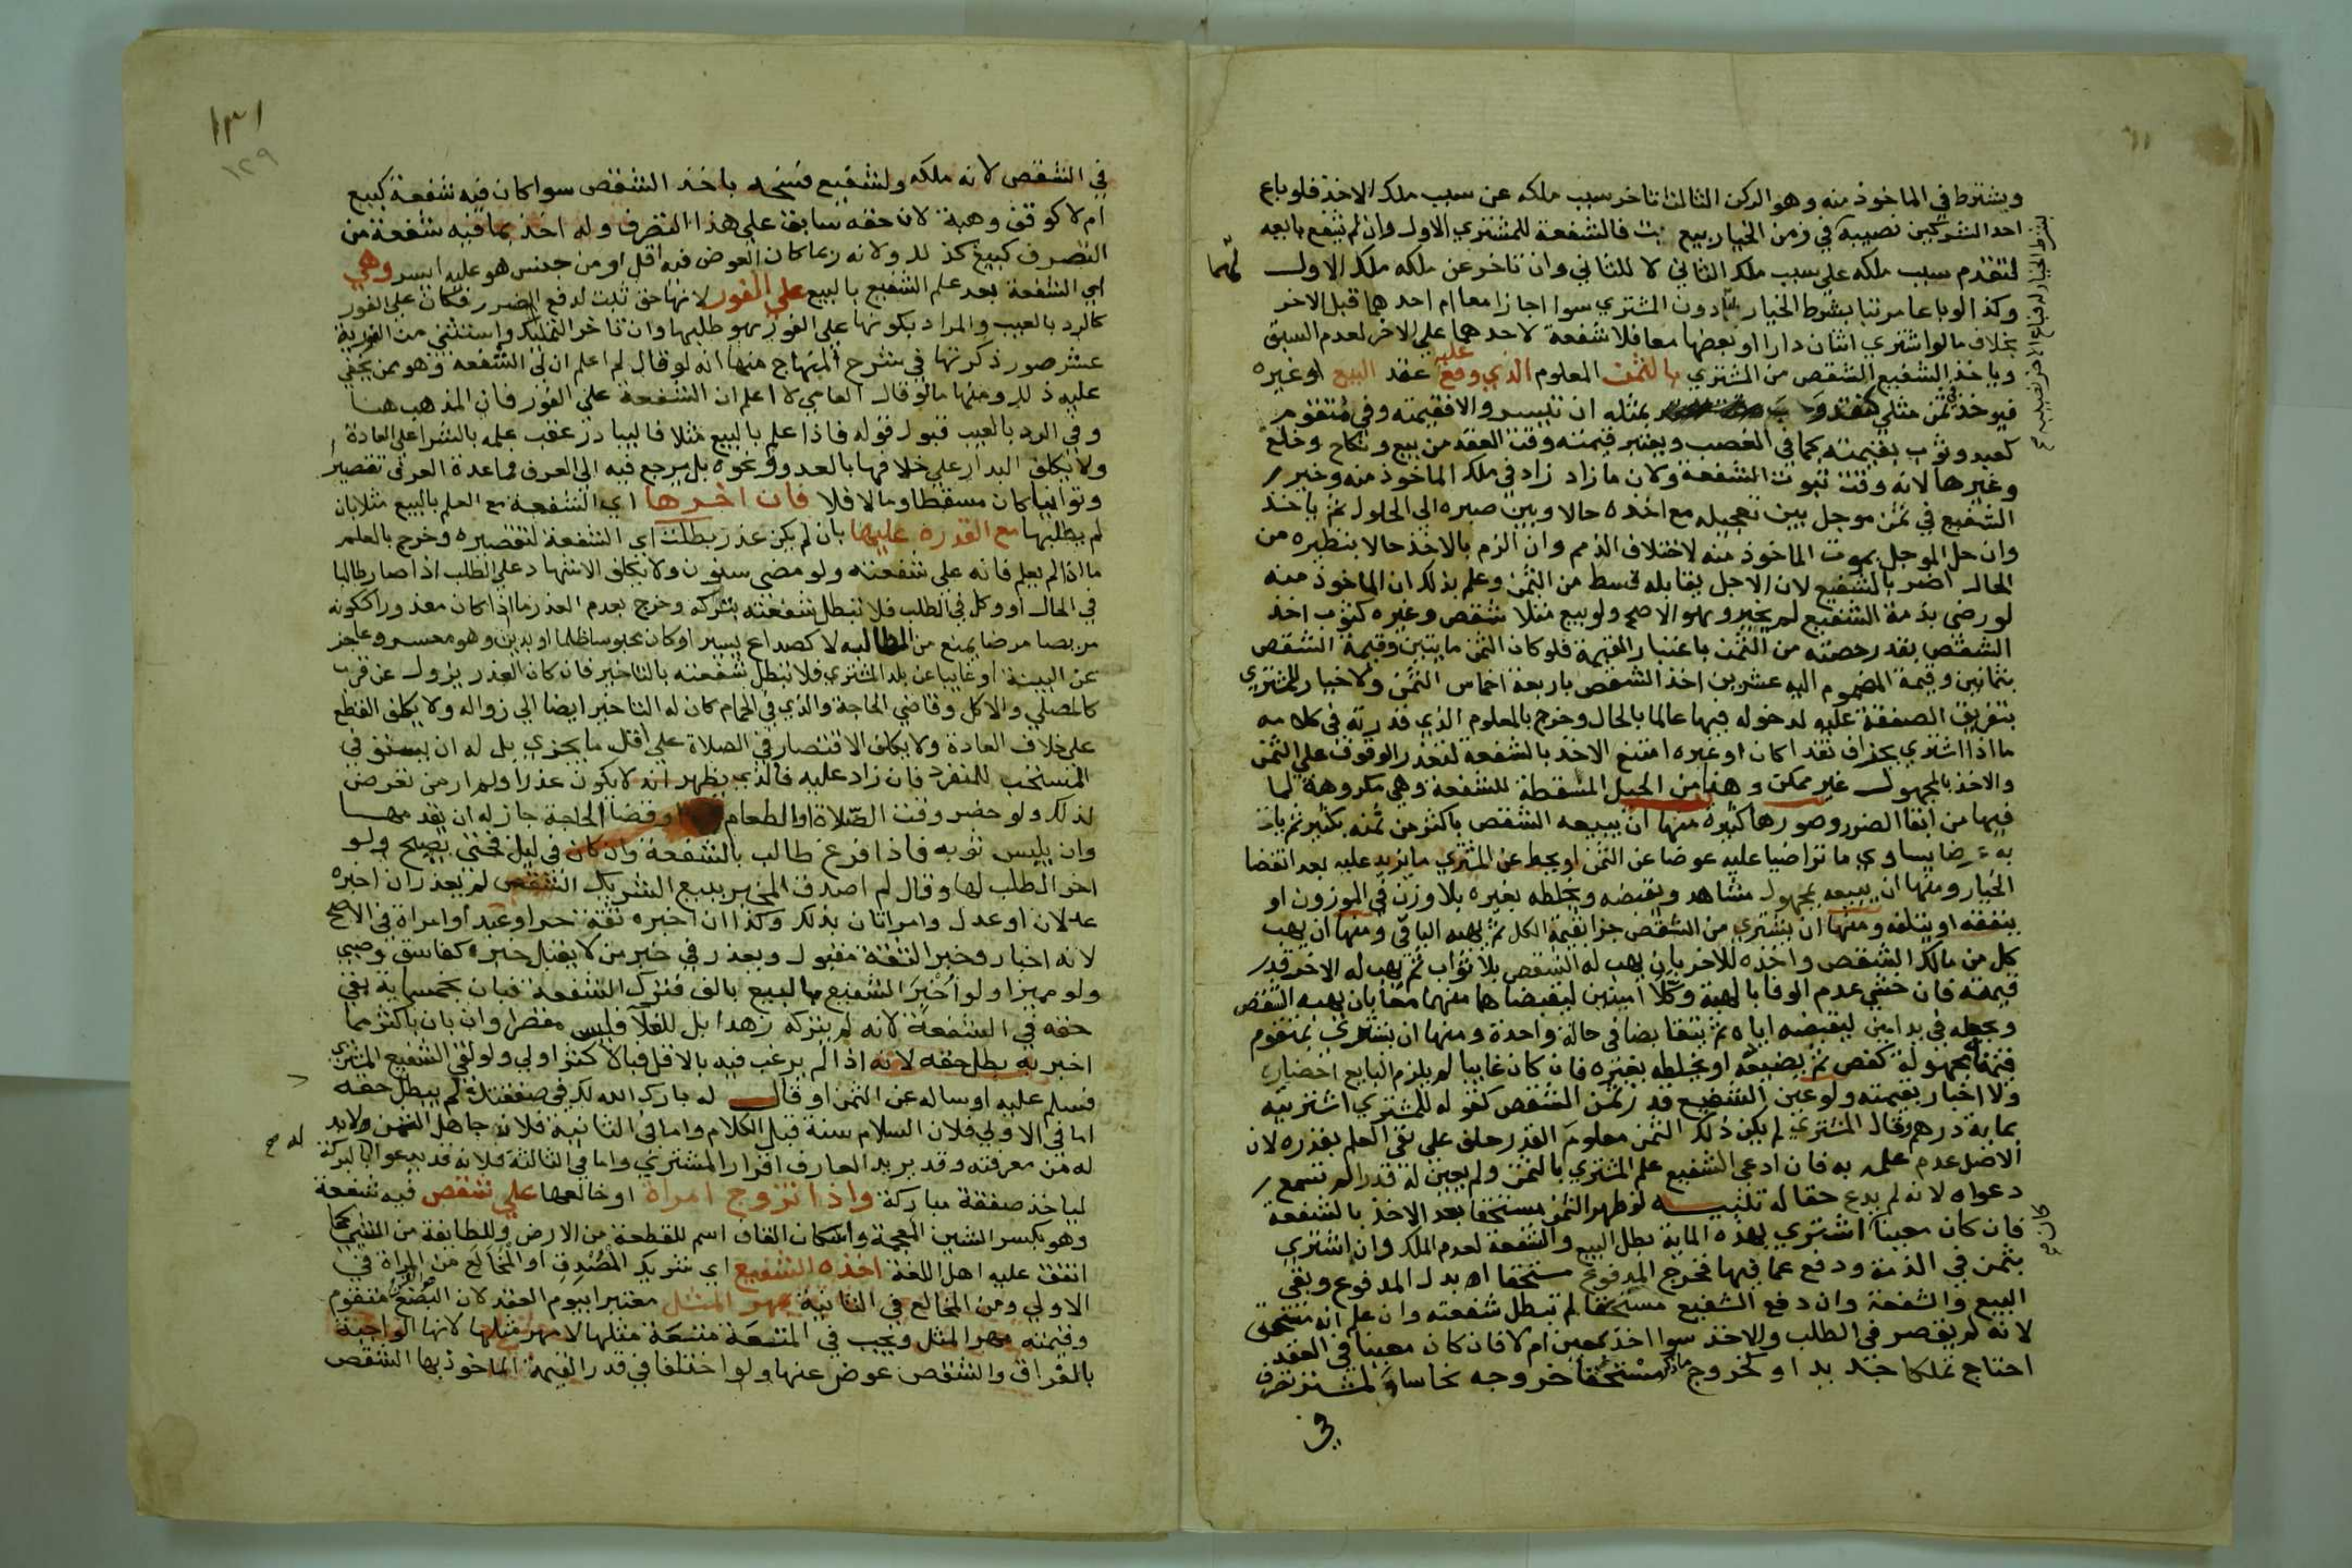 ويشترط في الماخوذ منه وهو الركن الثالث تاخر سبب ملكه عن سبب ملك الاخذ فلو باع
احد الشريكين نصيبه في زمن الخيار بيع بت فالشفعة للمشتري الاول وان لم يشفع بايعه
لتقدم سبب ملكه على سبب ملك الثاني لا للثاني وان تاخر عن ملكه ملك الاول
وكذا لو باعا مرتبا بشرط الخيار لهما دون المشتري سوا اجازا معا ام احدهما قبل الاخر
بخلاف ما لو اشترى اثنان دارا او بعضها معا فلا شفعة لاحدهما على الاخر لعدم السبق
وياخذ الشفيع الشقص من المشتري بالثمن المعلوم الذي وقع عليه عقد البيع او غيره
فيوخذ في ثمن مثلي كنقد وحب بمثله ان تيسر والا فقيمته وفي متقوم
كعبد وثوب بقيمته كما في الغصب ويعتبر قيمته وقت العقد من بيع ونكاح وخلع
وغيرها لانه وقت ثبوت الشفعة ولان ما زاد زاد في ملك الماخوذ منه وخير
الشفيع في ثمن موجل بين تعجيله مع اخذه حالا وبين صبره الى الحلول ثم ياخذ
وان حل الموجل بموت الماخوذ منه لاختلاف الذمم وان الزم بالاخذ حالا بنظيره من
الحال اضر بالشفيع لان الاجل يقابله قسط من الثمن وعلم بذلك ان الماخوذ منه
لو رضي بذمة الشفيع لم يخير وهو الاصح ولو بيع مثلا شقص وغيره كثوب اخذ
الشقص بقدر حصته من الثمن باعتبار القيمة فلو كان الثمن مايتين وقيمة الشقص
بثمانين وقيمة المضموم اليه عشرين اخذ الشقص باربعة اخماس الثمن ولا خيار للمشتري
بتفريق الصفقة عليه لدخوله فيها عالما بالحال وخرج بالمعلوم الذي قدرته في كلامه
ما اذا اشتري بجزاف نقدا كان او غيره امتنع الاخذ بالشفعة لتعذر الوقوف علي الثمن
والاخذ بالمجهول غير ممكن وهذا من الحيل المسقطة للشفعة وهي مكروهة لما
فيها من ابقا الضرر وصورها كثيرة منها ان يبيعه الشقص باكثر من ثمنه بكثير ثم ياخذ
به عرضا يساوي ما تراضيا عليه عوضا عن الثمن او يحط عن المشتري ما يزيد عليه بعد انقضا
الخيار ومنها ان يبيعه بمجهول مشاهد ويقبضه ويخلطه بغيره بلا وزن في الموزون او
ينفقه او يتلفه ومنها ان يشتري من الشقص جزا بقيمة الكل ثم يهبه الباقي ومنها ان يهب
كل من مالك الشقص واخذه للاخر بان يهب له الشقص بلا ثواب ثم يهب له الاخر قدر
قيمته فان خشي عدم الوفا بالهبة وكلا امينين ليقبضاهما منهما معا بان يهبه الشقص
ويجعله في يد امين ليقبضه اياه ثم يتقابضا في حالة واحدة ومنها ان يشتري بمتقوم
قيمته مجهولة كفص ثم يضيعه او يخلطه بغيره فان كان غايبا لم يلزم البايع احضاره
ولا اخبار بقيمته ولو عين الشفيع قدر ثمن الشقص كقوله للمشتري اشتريته
بماية درهم وقال المشتري لم يكن ذلك الثمن معلوم القدر حلف على نفي العلم بقدره لان
الاصل عدم علمه به فان ادعى الشفيع علم المشتري بالثمن ولم يعين له قدرا لم تسمع
دعواه لانه لم يدع حقا له تنبيه لو ظهر الثمن مستحقا بعد الاخذ بالشفعة
فان كان معينا كان اشتري بهذه الماية بطل البيع والشفعة لعدم الملك وان اشتري
بثمن في الذمة ودفع عما فيها فخرج المدفوع مستحقا ابدل المدفوع وبقي
البيع والشفعة وان دفع الشفيع مستحقا لم تبطل شفعته وان علم انه مستحق
لانه لم يقصر في الطلب والاخذ سوا اخذ بمعين ام لا فان كان معينا في العقد
احتاج تملكا جديدا وكخروج ما ذكر مستحقا خروجه نحاسا ولمشتر تصرف
في
بشرط الخيار له فباع الاخر نصيبه
لهما
كان
١٣١
١٢٩
في الشقص لانه ملكه ولشفيع فسخه باخذ الشقص سوا كان فيه شفعة كبيع
ام لا كوقف وهبة لان حقه سابق على هذا التصرف وله اخذ بما فيه شفعة من
التصرف كبيع كذلك ولانه ربما كان العوض فيه اقل او من جنس هو عليه ايسر وهي
اي الشفعة بعد علم الشفيع بالبيع على الفور لانها حق ثبت لدفع الضرر فكان على الفور
كالرد بالعيب والمراد بكونها على الفور هو طلبها وان تاخر التملك واستثني من الفورية
عشر صور ذكرتها في شرح المنهاج منها انه لو قال لم اعلم ان لي الشفعة وهو ممن يخفى
عليه ذلك ومنها ما لو قال العامي لا اعلم ان الشفعة على الفور فان المذهب هنا
وفي الرد بالعيب قبول قوله فاذا علم بالبيع مثلا فليبادر عقب علمه بالشرا على العادة
ولا يكلف البدار على خلافها بالعدو ونحوه بل يرجع فيه الى العرف فما عده العرف تقصيرا
وتوانيا كان مسقطا وما لا فلا فان اخرها اي الشفعة مع العلم بالبيع مثلا بان
لم يطلبها مع القدرة عليها بان لم يكن عذر بطلت اي الشفعة لتقصيره وخرج بالعلم
ما اذا لم يعلم فانه على شفعته ولو مضى سنون ولا يكلف الاشهاد على الطلب اذا صار طالبا
في الحال او وكل في الطلب فلا تبطل شفعته بتركه وخرج بعدم العذر ما اذا كان معذورا ككونه
مريضا مرضا يمنع من المطالبه لا كصداع يسير او كان محبوسا ظلما او بدين وهو معسر وعاجز
عن البينة او غايبا عن بلد المشتري فلا تبطل شفعته بالتاخير فان كان العذر يزول عن قرب
كالمصلي والاكل وقاضي الحاجة والذي في الحمام كان له التاخير ايضا الى زواله ولا يكلف القطع
على خلاف العادة ولا يكلف الاقتصار في الصلاة على اقل ما يجزي بل له ان يستوفي
المستحب للمنفرد فان زاد عليه فالذي يظهر انه لا يكون عذرا ولم ار من تعرض
لذلك ولو حضر وقت الصلاة او الطعام او قضا الحاجة جاز له ان يقدمها
وان يلبس ثوبه فاذا فرغ طالب بالشفعة وان كان في ليل فحتى يصبح ولو
اخر الطلب لها وقال لم اصدق المخبر ببيع الشريك الشقص لم يعذر ان اخبره
عدلان او عدل وامراتان بذلك وكذا ان اخبره ثقة حر او عبد او امراة في الاصح
لانه اخبار وخبر الثقة مقبول ويعذر في خبر من لا يقبل خبره كفاسق وصبي
ولو مميزا ولو اخبر الشفيع بالبيع بالف فترك الشفعة فبان بخمسماية بقي
حقه في الشفعة لانه لم يتركه زهدا بل للغلا فليس مقصرا وان بان باكثر مما
اخبر به بطل حقه لانه اذا لم يرغب فيه بالاقل فبالاكثر اولى ولو لقي الشفيع المشتري
فسلم عليه او ساله عن الثمن او قال له بارك الله لك في صفقتك لم يبطل حقه
اما في الاولى فلان السلام سنة قبل الكلام واما في الثانية فلان جاهل الثمن لابد
له من معرفته وقد يريد العارف اقرار المشتري واما في الثالثة فلانه قد يدعو بالبركة
لياخذ صفقة مباركة واذا تزوج امراة او خالعها على شقص فيه شفعة
وهو بكسر الشين المعجمة واسكان القاف اسم للقطعة من الارض وللطايفة من الشي كما
اتفق عليه اهل اللغة اخذه الشفيع اي شريك المصدق او المخالع من المراة في
الاولى ومن المخالع في الثانية بمهر المثل معتبرا بيوم العقد لان البضع متقوم
وقيمته مهر المثل ويجب في المتعة متعة مثلها لا مهر مثلها لانها الواجبة
بالفراق والشقص عوض عنها ولو اختلفا في قدر القيمة الماخوذ بها الشقص
له صح